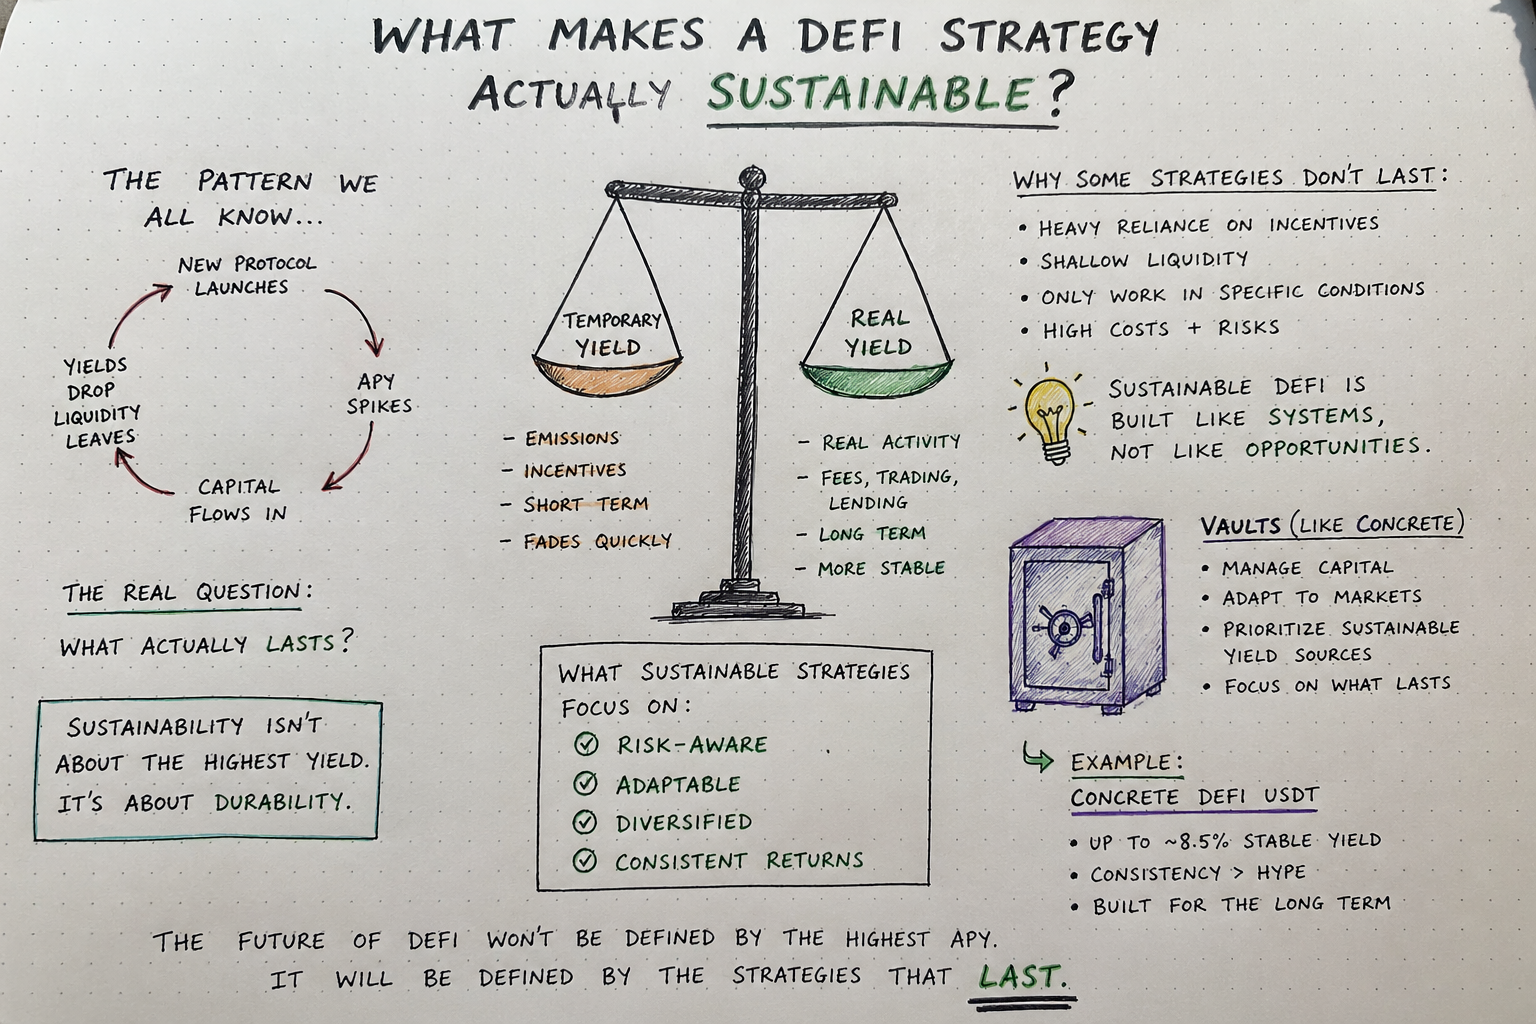 WHAT MAKES A DEFI STRATEGY
ACTUALLY SUSTAINABLE?
THE PATTERN WE
ALL KNOW...
NEW PROTOCOL
LAUNCHES
APY
SPIKES
CAPITAL
FLOWS IN
YIELDS
DROP
LIQUIDITY
LEAVES
THE REAL QUESTION:
WHAT ACTUALLY LASTS?
SUSTAINABILITY ISN'T
ABOUT THE HIGHEST YIELD.
IT'S ABOUT DURABILITY.
TEMPORARY
YIELD
- EMISSIONS
- INCENTIVES
- SHORT TERM
- FADES QUICKLY
REAL
YIELD
- REAL ACTIVITY
- FEES, TRADING,
LENDING
- LONG TERM
- MORE STABLE
WHAT SUSTAINABLE STRATEGIES
FOCUS ON:
RISK-AWARE
ADAPTABLE
DIVERSIFIED
CONSISTENT RETURNS
WHY SOME STRATEGIES DON'T LAST:
• HEAVY RELIANCE ON INCENTIVES
• SHALLOW LIQUIDITY
• ONLY WORK IN SPECIFIC CONDITIONS
• HIGH COSTS + RISKS
SUSTAINABLE DEFI IS
BUILT LIKE SYSTEMS,
NOT LIKE OPPORTUNITIES.
VAULTS (LIKE CONCRETE)
• MANAGE CAPITAL
• ADAPT TO MARKETS
• PRIORITIZE SUSTAINABLE
YIELD SOURCES
• FOCUS ON WHAT LASTS
EXAMPLE:
CONCRETE DEFI USDT
• UP TO ~8.5% STABLE YIELD
• CONSISTENCY > HYPE
• BUILT FOR THE LONG TERM
THE FUTURE OF DEFI WON'T BE DEFINED BY THE HIGHEST APY.
IT WILL BE DEFINED BY THE STRATEGIES THAT LAST.